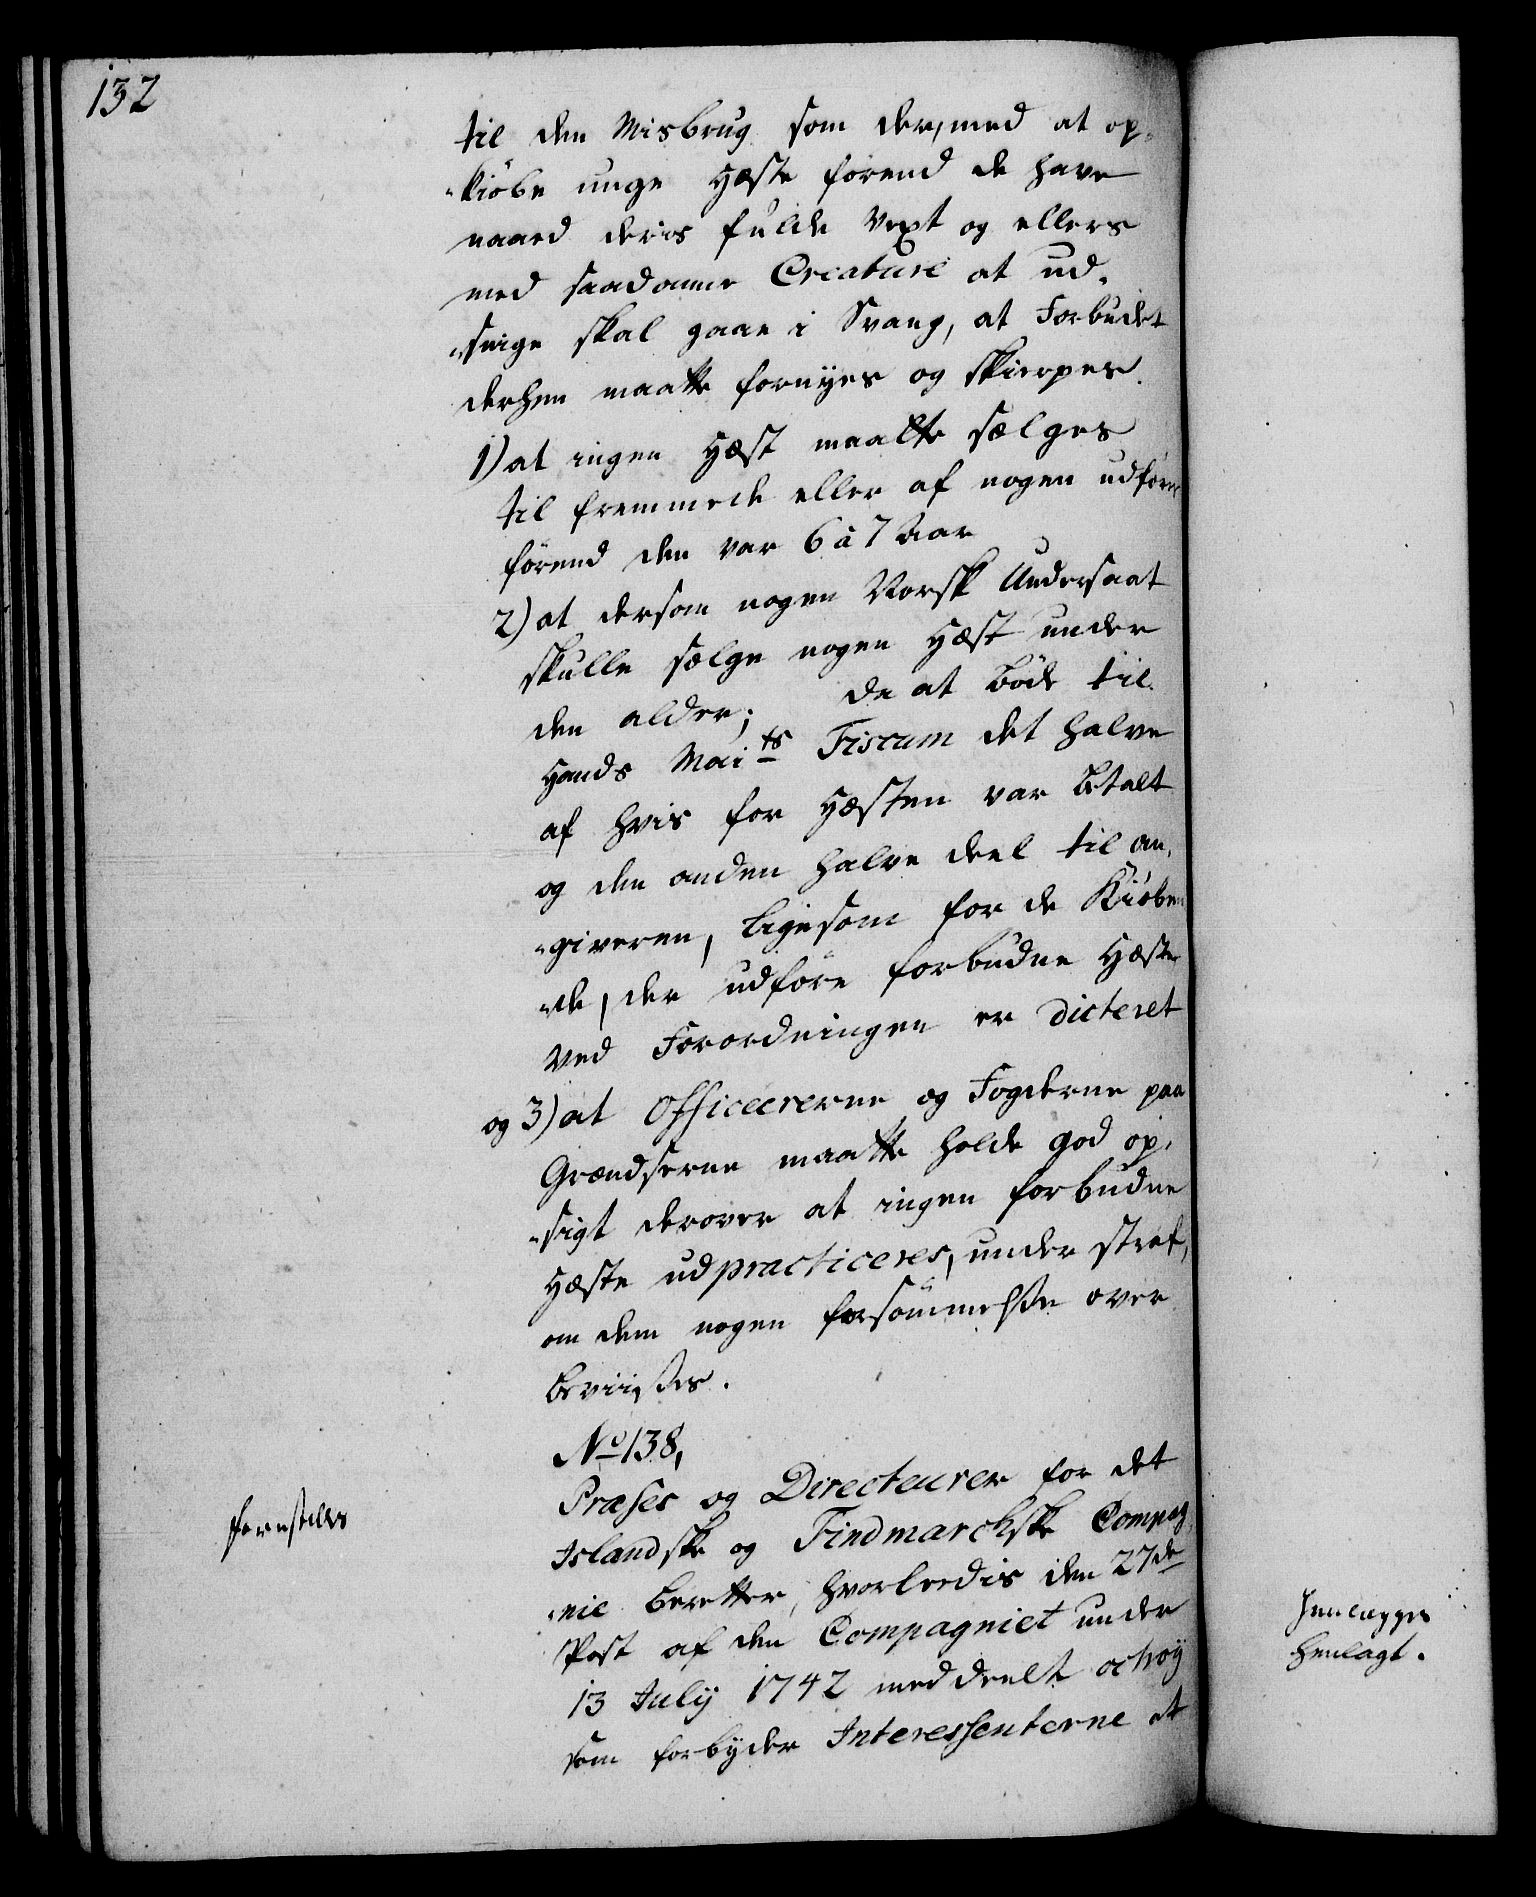 132
til den Misbrug som der, med at op-
-kiöbe unge Hæste förend de have
naaed deris fulde Vext og ellers
med saadanne Creature at ud-
-snige skal gaae i Svang, at Forbudet
derhen maatte fornyes og skierpes.
1) at ingen Hæst maatte sælges
til fremmede eller af nogen udföres
förend den var 6 à 7 Aar
2) at dersom nogen Norsk Undersaat
skulle sælge nogen Hæst under
den alder; da at böde til
Hands Maits Fiscum det halve
af hvis for Hæsten var betalt
og den anden halve deel til an-
-giveren, ligesom for de Kiöben-
-de, der udföre forbudne Hæste
ved Forordningen er dicteret
og 3) at Officeererne og Fogderne paa
Grændserne maatte holde god op-
-sigt derover at ingen forbudne
Hæste udpracticeres, under straf,
om dem nogen forsömmelse over
beviises.
No 138,
Præses og Directeurer for det
Islandske og Findmarchske Compag-
-nie beretter, hvorleedis den 27de
Post af den Compagniet under
13 July 1742 meddeelt octroy
som forbyder Interessenterne at
forestilles
henlagt.